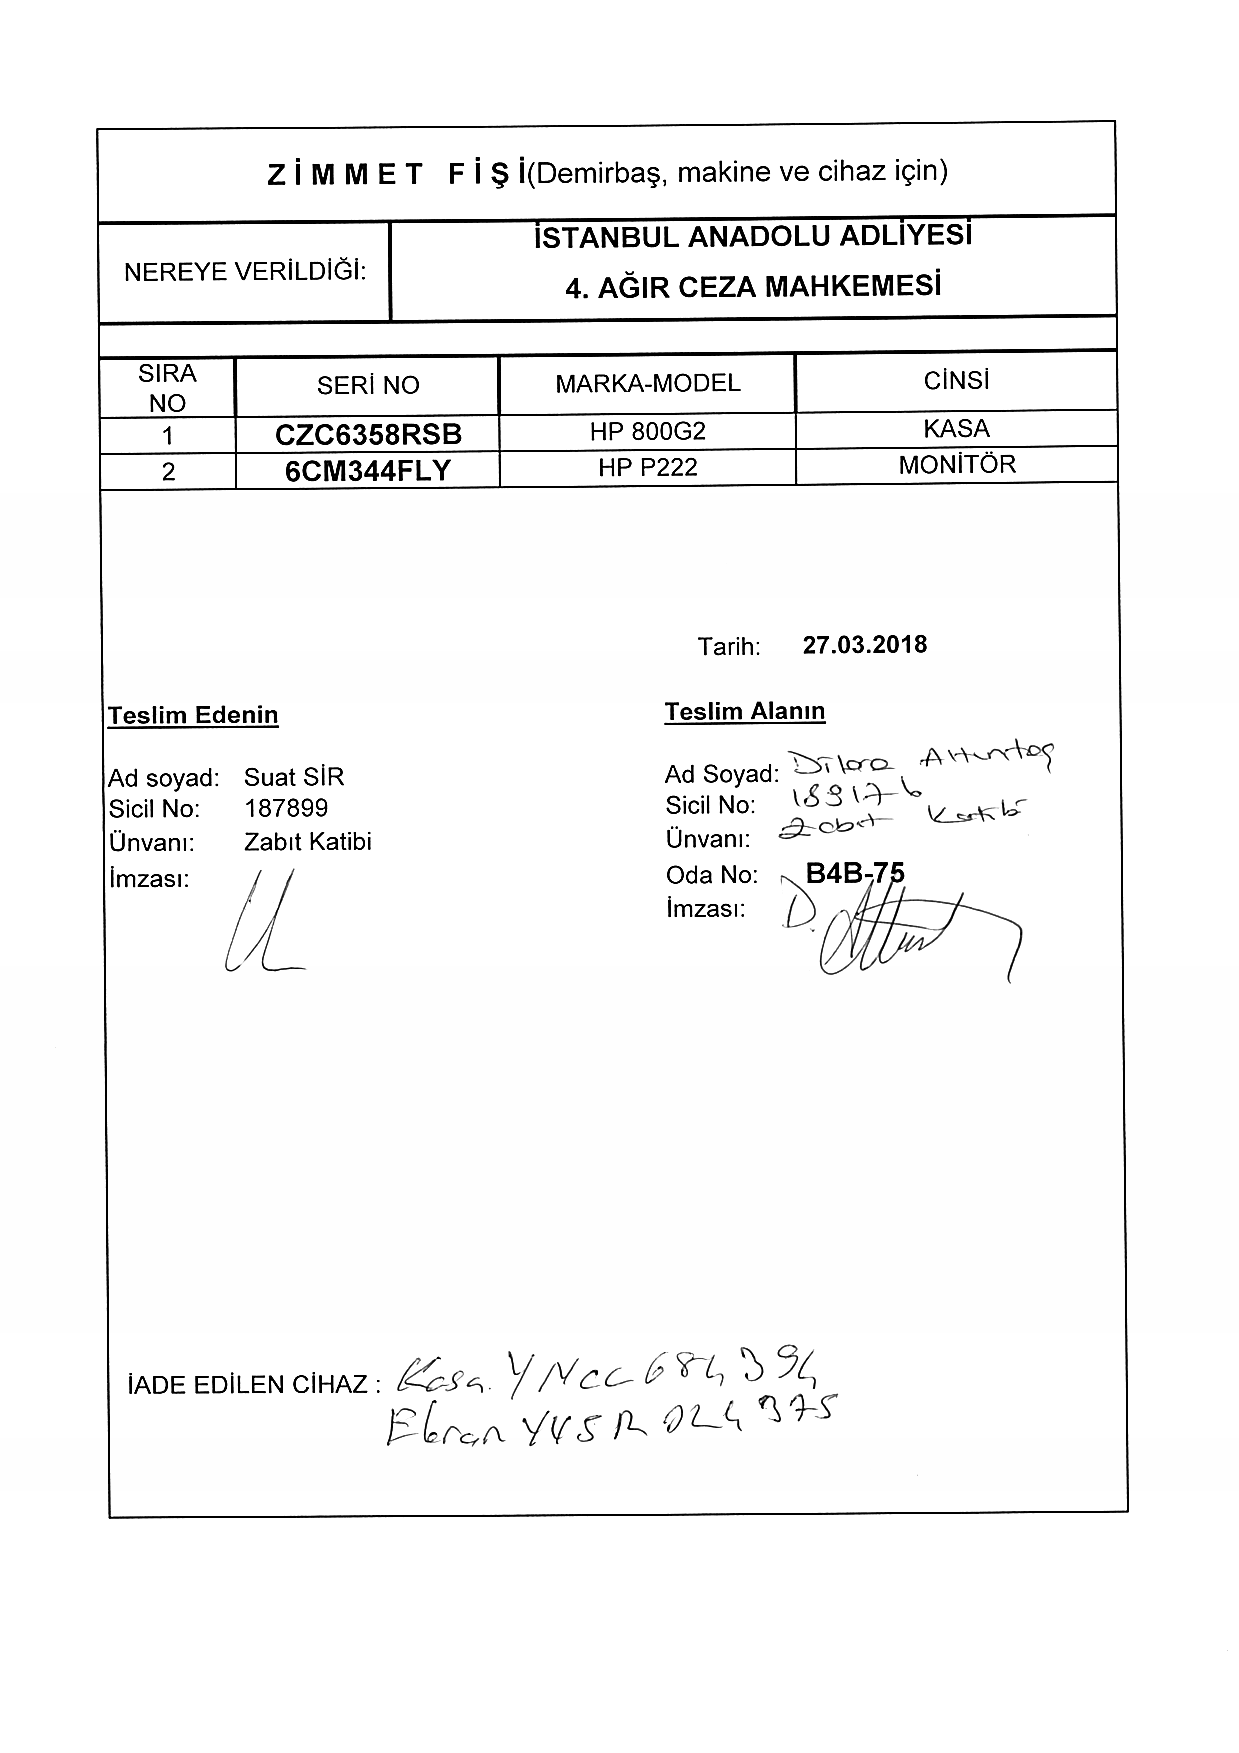 ZİMMET FİŞİ(Demirbaş, makine ve cihaz için)
NEREYE VERİLDİĞİ:
İSTANBUL ANADOLU ADLİYESİ
4. AĞIR CEZA MAHKEMESİ
SIRA NO SERİ NO MARKA-MODEL CİNSİ
1 CZC6358RSB HP 800G2 KASA
2 6CM344FLY HP P222 MONİTÖR
Tarih: 27.03.2018
Teslim Edenin
Ad soyad: Suat SİR
Sicil No: 187899
Ünvanı: Zabıt Katibi
İmzası:
Teslim Alanın
Ad Soyad: Dilara Altuntaş
Sicil No:
Ünvanı: Zabıt Katibi
Oda No: B4B-75
İmzası:
İADE EDİLEN CİHAZ : Kasa YNCC684394
Ekran YV5R024375